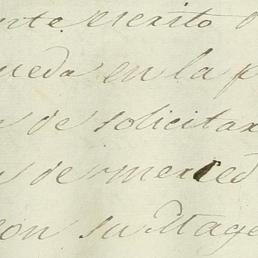 escrito
queda en la p
de solicitar
de merced
con su Mage